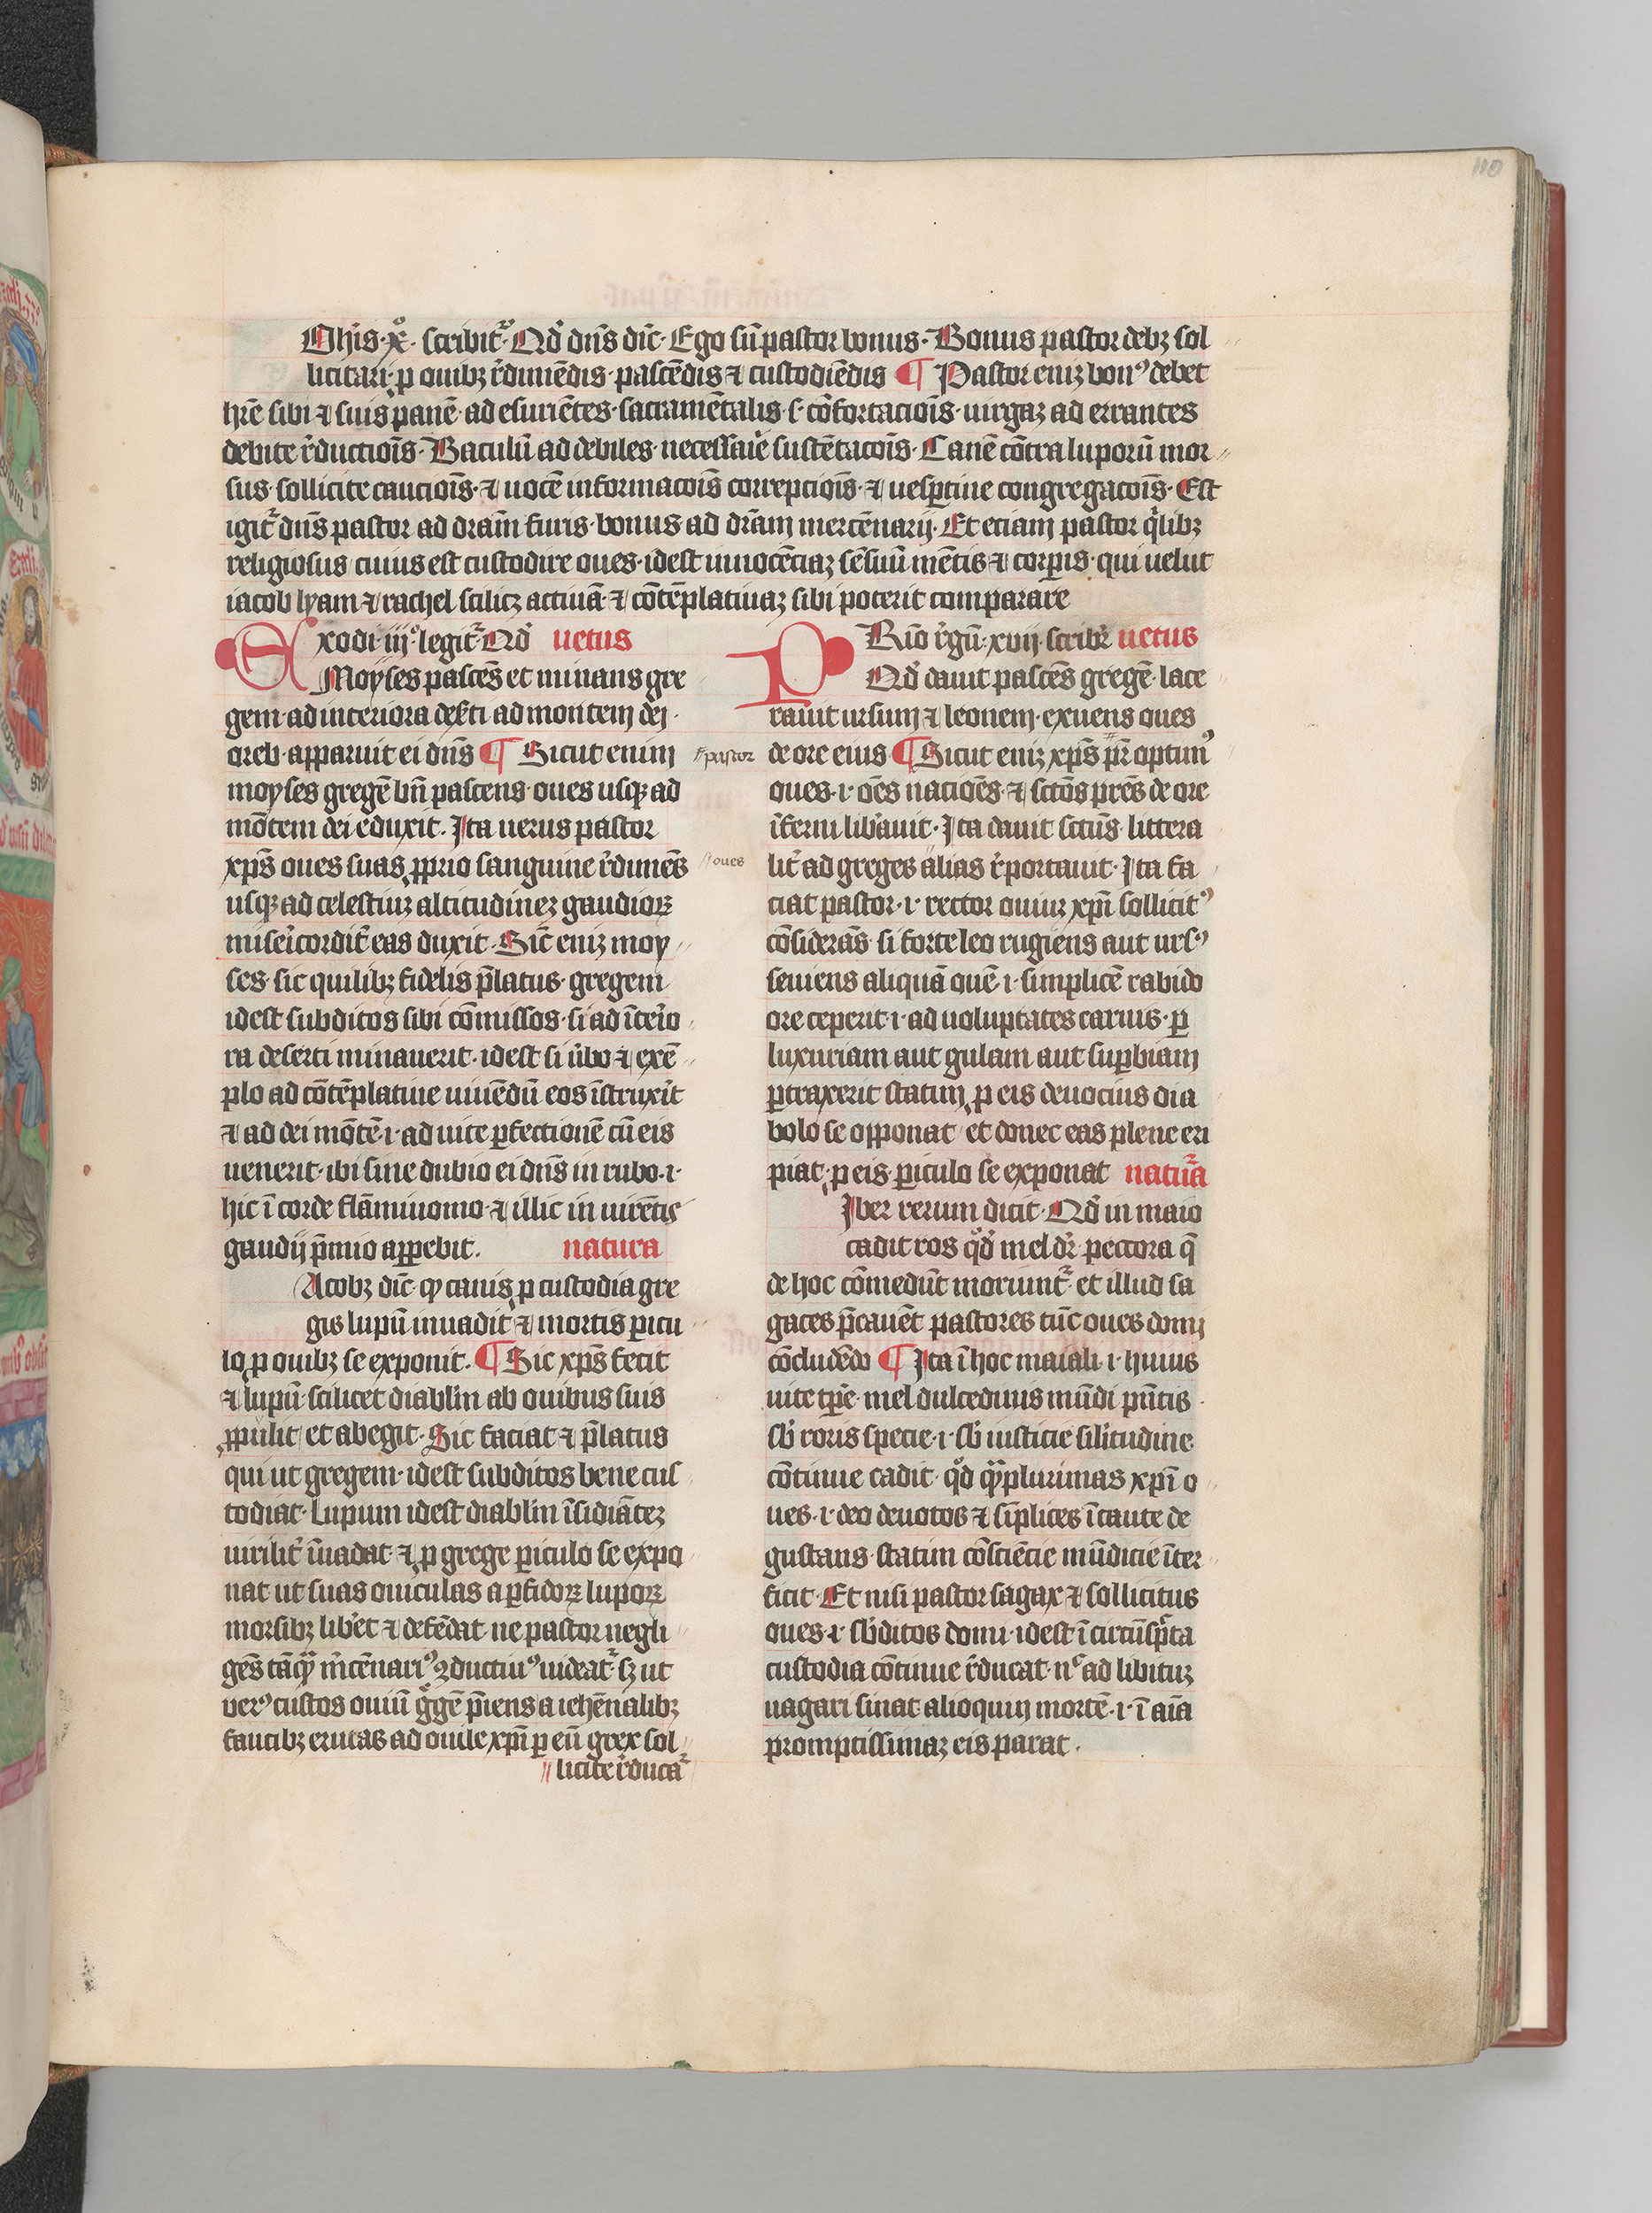 110
Ohis · x° · scribit᷑ · Qd' dn̄s dic̄ · Ego sū pastor bonus · Bonus pastor debꝫ sol
licitari · ꝓ ouibꝫ r̄dimēdis · pascēdis ⁊ custodiēdis ¶ Pastor eniꝫ bonꝰ debet
hr̄e sibi ⁊ suis panē · ad esuriētes · sacramētalis · s · cōfortaciōis · uirgaꝫ ad errantes
debite r̄ductiōis · Baculū ad debiles · necessar̄ie sustētacōis · Canē cōtra luporū mor
sus · sollicite cauciōis · ⁊ uocē informacōis correpciōis · ⁊ uesꝑtine congregacōis · Est
igit᷑ dn̄s pastor ad dr̄am furis · bonus ad dr̄am mercēnarij · Et eciam pastor q̄libꝫ
religiosus cuius est custodire oues · idest innocēciaꝫ sēsuū mētis ⁊ corꝑis · qui uelut
iacob lyam ⁊ rachel scilicꝫ actiuā · ⁊ cōtēplatiuaꝫ sibi poterit comparare
Exodi · iij° · legit᷑ Qd' uetus
Moyses pascēs et minans gre
gem · ad interiora deẜti ad montem dei ·
oreb · apparuit ei dn̄s ¶ Sicut enim
moyses gregē bn̄ pascens · oues usqꝫ ad
mōtem dei eduxit · Ita uerus pastor
xp̄s oues suas ꝓprio sanguine r̄dimēs
usqꝫ ad celestiuꝫ altitudineꝫ gaudioꝝ
mis̄ericordit̄ eas duxit · Sic̄ eniꝫ moy
ses · sic quilibꝫ fidelis p̄latus · gregem
idest subditos sibi cōmissos · si ad īter̄io
ra deserti minauerit · idest si ūbo ⁊ exē
plo ad cōtēplatiue uiuēdū eos īstruxit̄
⁊ ad dei mōtē · i · ad uite ꝑfectionē cū eis
uenerit · ibi sine dubio ei dn̄s in rubo · i ·
hic ī corde flāmiuomo · ⁊ illic in uirētis
gaudij p̄mio apꝑebit · natura
Acobꝫ dic̄ · ꝙ canis ꝓ custodia gre
gis lupū inuadit ⁊ mortis ꝑicu
lo ꝓ ouibꝫ se exponit · ¶ Sic xp̄s fecit
⁊ lupū · scilicet diablm̄ ab ouibus suis
ꝓpulit et abegit · Sic faciat ⁊ p̄latus
qui ut gregem · idest subditos bene cus
todiat · Lupum idest diablm̄ īsidiāteꝫ
uirilit̄ īuadat ⁊ ꝓ grege ꝑiculo se expo
nat ut suas ouiculas a ꝑfidoꝝ lupoꝝ
morsibꝫ lib̄et ⁊ defēdat · ne pastor negli
gēs tāꝙ̄ m̄cēnariꝰ ꝯductiuꝰ uideat᷑ sꝫ ut
verꝰ custos ouiū g̊gē p̄miens a iehēnalibꝫ
faucibꝫ erutas ad ouile xp̄i ꝑ eū grex sol
licite r̄ducat᷑
pastor
oues
PRiō r̄gū · xvij · scribit᷑ uetus
Qd' dauit pascēs gregē · lace
rauit ursum ⁊ leonem · exuens oues
de ore eius ¶ Sicut eniꝫ xp̄s pr̄ optimꝰ
oues · i · oēs naciōes · ⁊ sctōs pr̄es de ore
īferni lib̄auit · Ita dauit sctūs · littera
lit̄ ad greges alias r̄portauit · Ita fa
ciat pastor · i · rector ouiuꝫ xp̄i sollicitꝰ
cōsiderās · si forte leo rugiens aut ursꝰ
seuiens aliquā ouē · i · simplicē rabido
ore ceperit · i · ad uoluptates carnis · ꝑ
luxuriam aut gulam aut suꝑbiam
ꝑtraxerit statim ꝓ eis deuocius dia
bolo se opponat et donec eas plene eri
piat ꝓ eis · ꝑiculo se exponat natur̄a
Iber rerum dicit · Qd' in maio
cadit ros qd̊ mel dr̄ · peccora q̄
de hoc cōmedūt moriunt᷑ · et illud sa
gaces p̄cauēt pastores tūc oues domi
cōcludēdo ¶ Ita ī hoc maiali · i · huius
uite tꝑe · mel dulcedinis mūdi pn̄tis ·
sb̄ roris specie · i · sb̄ iusticie sil̄itudine
cōtinue cadit · qd̊ ꝙ̄plurimas xp̄i o
ues · i · deo deuotos ⁊ sīplices īcaute de
gustans · statim cōsciēcie mūdicie īter
ficit · Et nisi pastor sagax ⁊ sollicitus
oues · i · sb̄ditos domi · idest ī circūsp̄ta
custodia cōtinue r̄ducat · nᶜ ad libituꝫ
uagari sinat · alioquin mortē · i · ī aīa
promptissimaꝫ eis parat ·